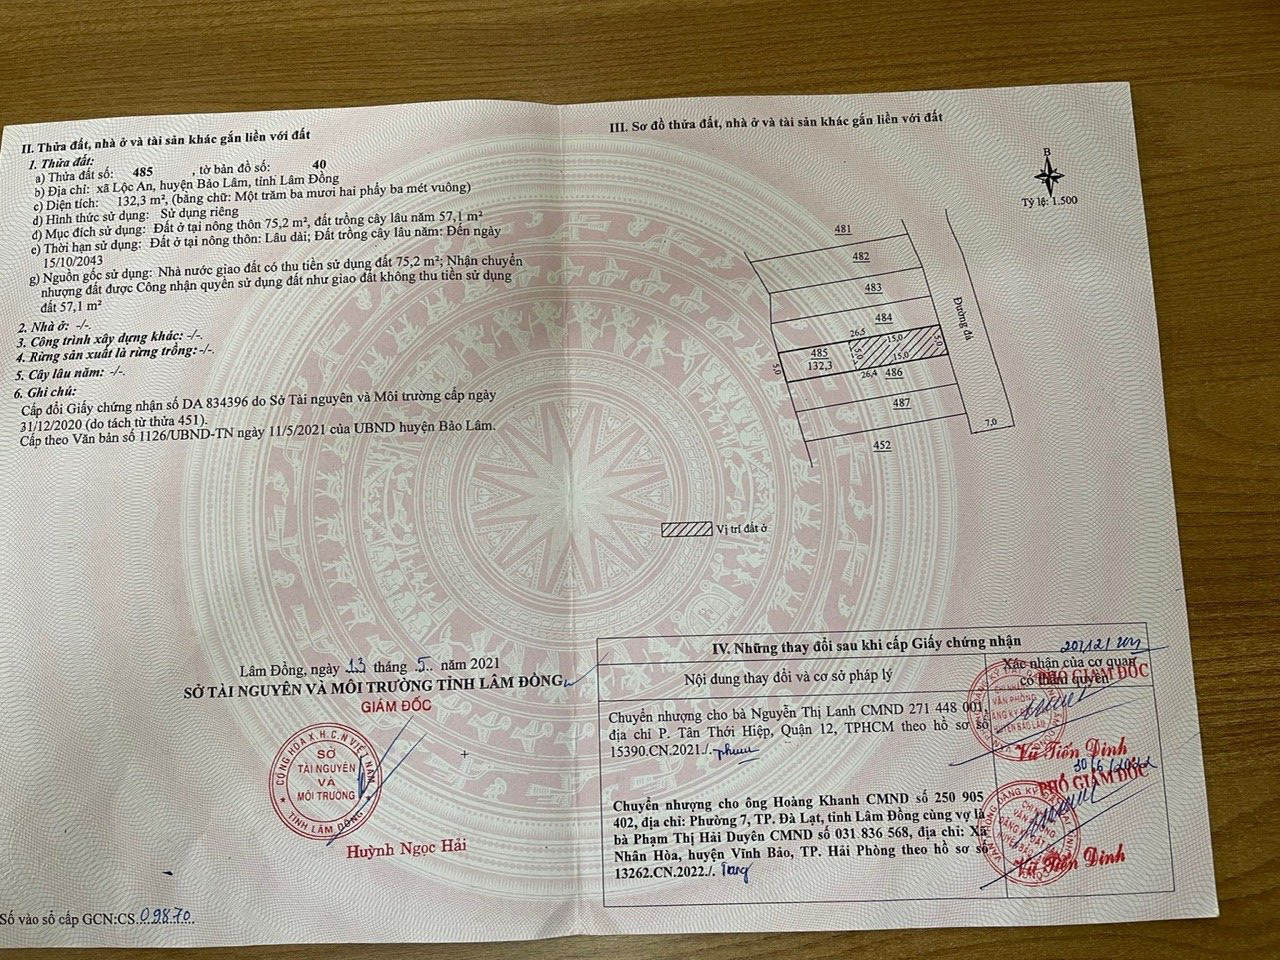 II. Thửa đất, nhà ở và tài sản khác gắn liền với đất
1. Thửa đất:
a) Thửa đất số: 485 , tờ bản đồ số: 40
b) Địa chỉ: xã Lộc An, huyện Bảo Lâm, tỉnh Lâm Đồng
c) Diện tích: 132,3 m², (bằng chữ: Một trăm ba mươi hai phẩy ba mét vuông)
d) Hình thức sử dụng: Sử dụng riêng
đ) Mục đích sử dụng: Đất ở tại nông thôn 75,2 m², đất trồng cây lâu năm 57,1 m²
e) Thời hạn sử dụng: Đất ở tại nông thôn: Lâu dài; Đất trồng cây lâu năm: Đến ngày
15/10/2043
g) Nguồn gốc sử dụng: Nhà nước giao đất có thu tiền sử dụng đất 75,2 m²; Nhận chuyển
nhượng đất được Công nhận quyền sử dụng đất như giao đất không thu tiền sử dụng
đất 57,1 m²
2. Nhà ở: -/-.
3. Công trình xây dựng khác: -/-.
4. Rừng sản xuất là rừng trồng:-/-.
5. Cây lâu năm: -/-.
6. Ghi chú:
Cấp đổi Giấy chứng nhận số DA 834396 do Sở Tài nguyên và Môi trường cấp ngày
31/12/2020 (do tách từ thửa 451).
Cấp theo Văn bản số 1126/UBND-TN ngày 11/5/2021 của UBND huyện Bảo Lâm.
Lâm Đồng, ngày 13 tháng 5 năm 2021
SỞ TÀI NGUYÊN VÀ MÔI TRƯỜNG TỈNH LÂM ĐỒNG
GIÁM ĐỐC
CỘNG HÒA X.H.C.N VIỆT NAM
SỞ
TÀI NGUYÊN
VÀ
MÔI TRƯỜNG
TỈNH LÂM ĐỒNG
Huỳnh Ngọc Hải
Số vào sổ cấp GCN:CS.09870
III. Sơ đồ thửa đất, nhà ở và tài sản khác gắn liền với đất
B
Tỷ lệ: 1.500
481
482
483
484
26,5
15,0
5,0
485
132,3
5,0
15,0
5,0
26,4
486
487
452
Đường đá
7,0
Vị trí đất ở
IV. Những thay đổi sau khi cấp Giấy chứng nhận
Nội dung thay đổi và cơ sở pháp lý
Xác nhận của cơ quan
có thẩm quyền
PHÓ GIÁM ĐỐC
Chuyển nhượng cho bà Nguyễn Thị Lanh CMND 271 448 001,
địa chỉ P. Tân Thới Hiệp, Quận 12, TPHCM theo hồ sơ số
15390.CN.2021./.
Vũ Tiến Dinh
30/6/2022
PHÓ GIÁM ĐỐC
Chuyển nhượng cho ông Hoàng Khanh CMND số 250 905
402, địa chỉ: Phường 7, TP. Đà Lạt, tỉnh Lâm Đồng cùng vợ là
bà Phạm Thị Hải Duyên CMND số 031 836 568, địa chỉ: Xã
Nhân Hòa, huyện Vĩnh Bảo, TP. Hải Phòng theo hồ sơ số
13262.CN.2022./. Trang
Vũ Tiến Dinh